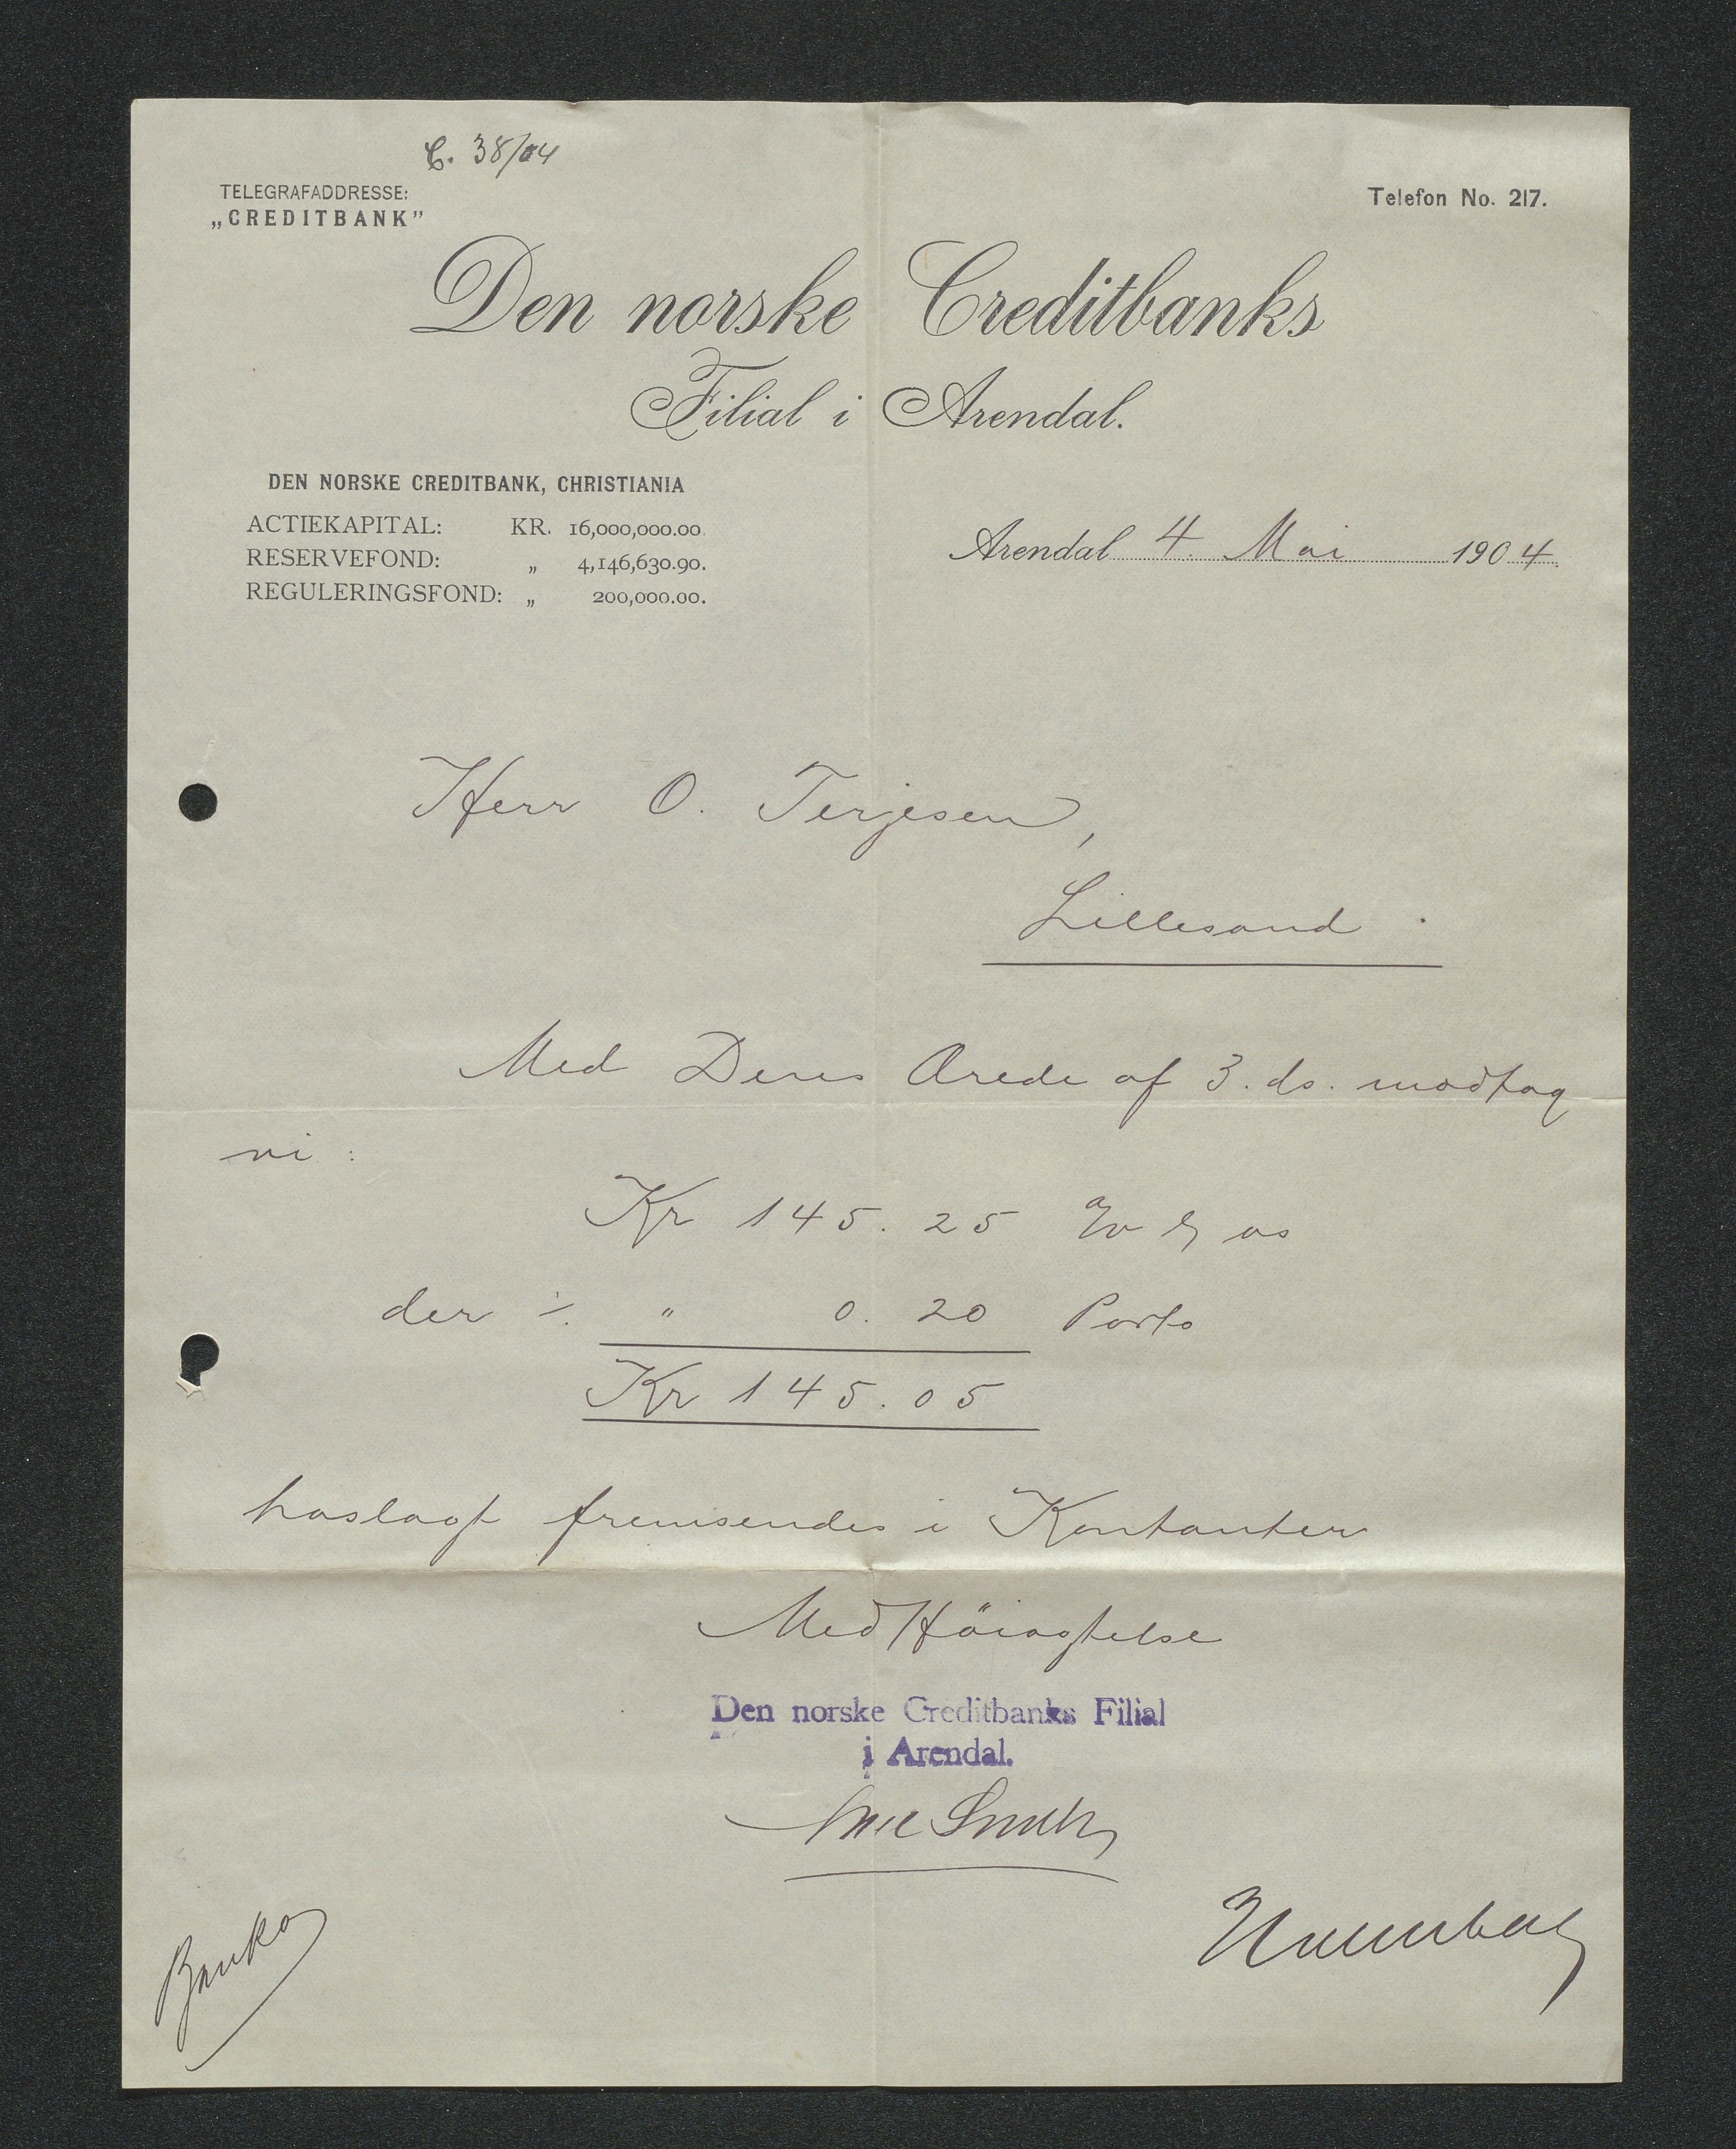 C. 38/04
TELEGRAFADDRESSE:
„CREDITBANK”
Telefon No. 217.
Den norske Creditbanks
Filial i Arendal.
DEN NORSKE CREDITBANK, CHRISTIANIA
ACTIEKAPITAL: KR. 16,000,000.00.
RESERVEFOND: „ 4,146,630.90.
REGULERINGSFOND: „ 200,000.00.
Arendal 4. Mai 1904.
Herr O. Terjesen,
Lillesand.
Med Deres Ærede af 3. ds. modtog
vi:
Kr 145.25 % os
der ÷ " 0.20 Porto
Kr 145.05
hoslagt fremsendes i Kontanter
Med Höiagtelse
Den norske Creditbanks Filial
i Arendal.
Smith
Banko